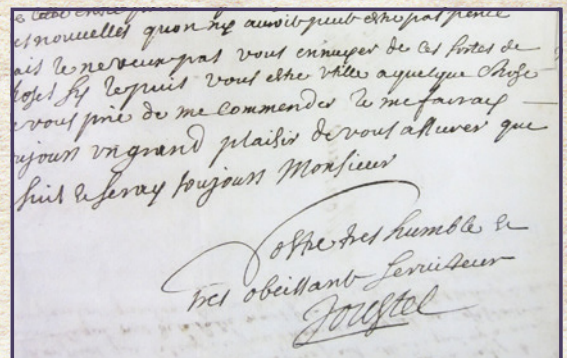 nouvelles quon ny auroit peut estre pas pencé
ais Je ne veux pas vous ennuyer de ces sortes de
hoses sy Je puis vous estre utille a quelque chose
e vous prie de me commender Je me fairay
oujours un grand plaisir de vous assurer que
suis et seray toujours Monsieur
Vostre tres humble et
tres obeissant serviteur
Joustel